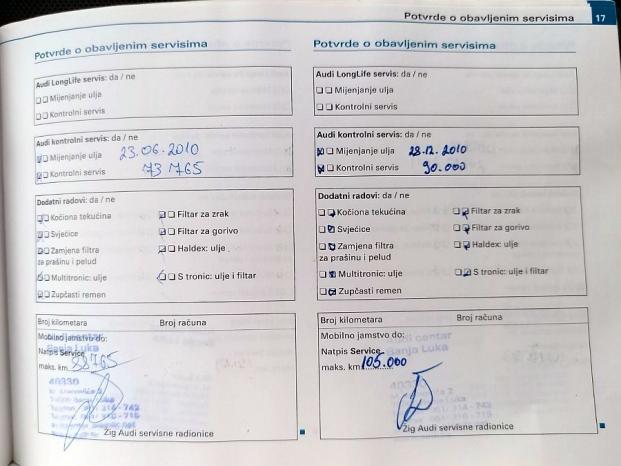 Potvrde o obavljenim servisima 17
Potvrde o obavljenim servisima
Audi LongLife servis: da / ne
Mijenjanje ulja
Kontrolni servis
Audi kontrolni servis: da / ne
Mijenjanje ulja 23.06.2010
Kontrolni servis 73 765
Dodatni radovi: da / ne
Kočiona tekućina Filtar za zrak
Svjećice Filtar za gorivo
Zamjena filtra Haldex: ulje
za prašinu i pelud
Multitronic: ulje S tronic: ulje i filtar
Zupčasti remen
Broj kilometara Broj računa
Mobilno jamstvo do:
Banja Luka
Natpis Service
maks. km 88765
40330
Žig Audi servisne radionice
Potvrde o obavljenim servisima
Audi LongLife servis: da / ne
Mijenjanje ulja
Kontrolni servis
Audi kontrolni servis: da / ne
Mijenjanje ulja 28.12.2010
Kontrolni servis 90.000
Dodatni radovi: da / ne
Kočiona tekućina Filtar za zrak
Svjećice Filtar za gorivo
Zamjena filtra Haldex: ulje
za prašinu i pelud
Multitronic: ulje S tronic: ulje i filtar
Zupčasti remen
Broj kilometara Broj računa
Mobilno jamstvo do:
Audi centar
Natpis Service Banja Luka
maks. km 105.000
Žig Audi servisne radionice